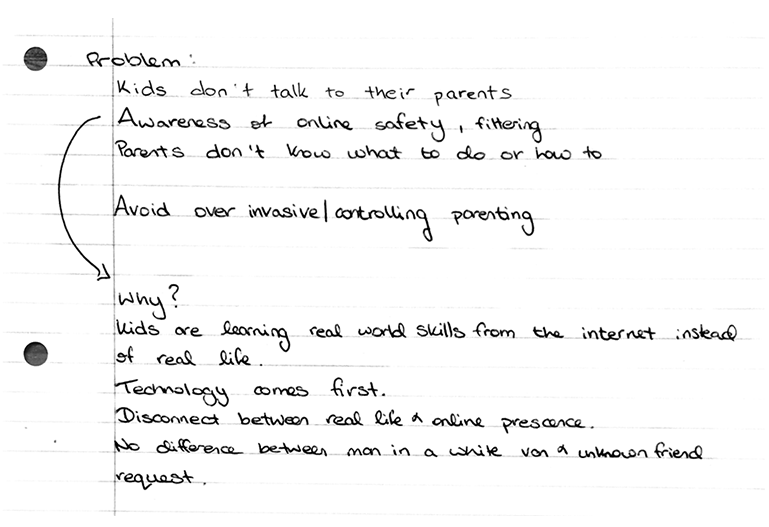 Problem:
Kids don't talk to their parents
Awareness of online safety, filtering
Parents don't know what to do or how to
Avoid over invasive/controlling parenting
Why?
Kids are learning real world skills from the internet instead
of real life.
Technology comes first.
Disconnect between real life & online prescence.
No difference between man in a white van & unknown friend
request.